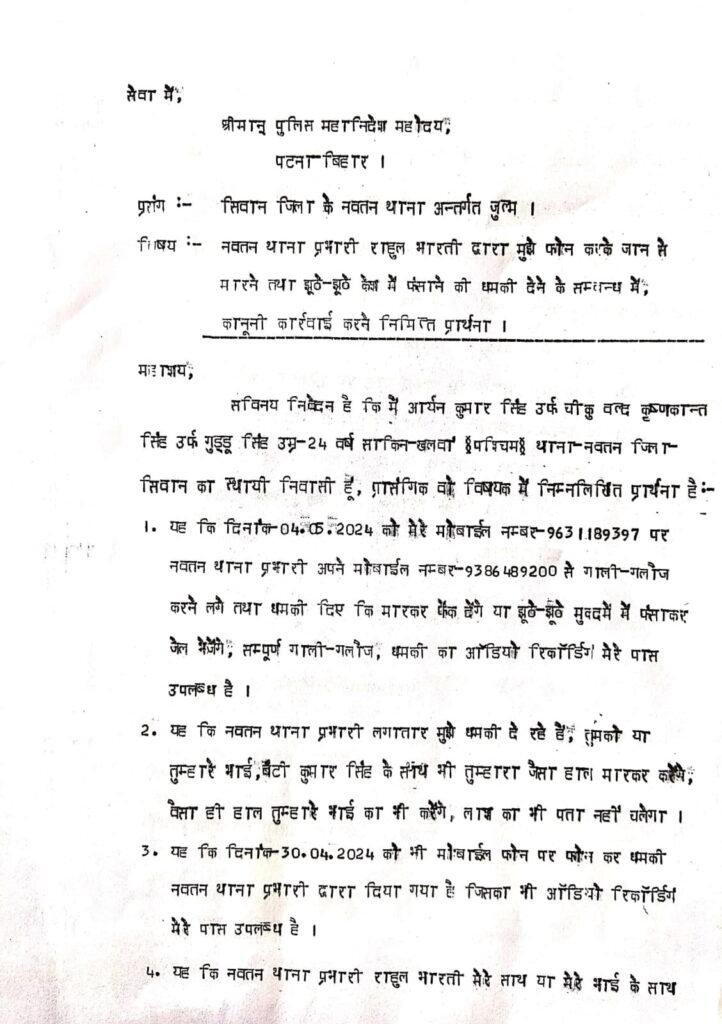 सेवा में,
श्रीमान् पुलिस महानिदेश महोदय,
पटना बिहार ।
प्रसंग :- सिवान जिला के नवतन थाना अन्तर्गत जुल्म ।
विषय :- नवतन थाना प्रभारी राहुल भारती द्वारा मुझे फोन करके जान से
मारने तथा झूठे-झूठे केश में फंसाने की धमकी देने के सम्बन्ध में,
कानूनी कार्रवाई करने निमित्ति प्रार्थना ।
महाशय,
सविनय निवेदन है कि मैं आर्यन कुमार सिंह उर्फ चीकु वल्द कृष्णकान्त
सिंह उर्फ गुड्डू सिंह उम्र-24 वर्ष साकिन-खलवां §पश्चिम§ थाना-नवतन जिला-
सिवान का स्थायी निवासी हूँ, प्रासंगिक वो विषयक में निम्नलिखित प्रार्थना है:-
1. यह कि दिनांक-04.05.2024 को मेरे मोबाईल नम्बर-9631189397 पर
नवतन थाना प्रभारी अपने मोबाईल नम्बर-9386489200 से गाली-गलौज
करने लगे तथा धमकी दिए कि मारकर फेंक देंगे या झूठे-झूठे मुकदमें में फंसाकर
जेल भेजेंगे, सम्पूर्ण गाली-गलौज, धमकी का ऑडियो रिकॉर्डिंग मेरे पास
उपलब्ध है ।
2. यह कि नवतन थाना प्रभारी लगातार मुझे धमकी दे रहे हैं, तुमको या
तुम्हारे भाई,बंटी कुमार सिंह के साथ भी तुम्हारा जैसा हाल मारकर करेंगे,
वैसा ही हाल तुम्हारे भाई का भी करेंगे, लाश का भी पता नहीं चलेगा ।
3. यह कि दिनांक-30.04.2024 को भी मोबाईल फोन पर फोन कर धमकी
नवतन थाना प्रभारी द्वारा दिया गया है जिसका भी ऑडियो रिकॉर्डिंग
मेरे पास उपलब्ध है ।
4. यह कि नवतन थाना प्रभारी राहुल भारती मेरे साथ या मेरे भाई के साथ